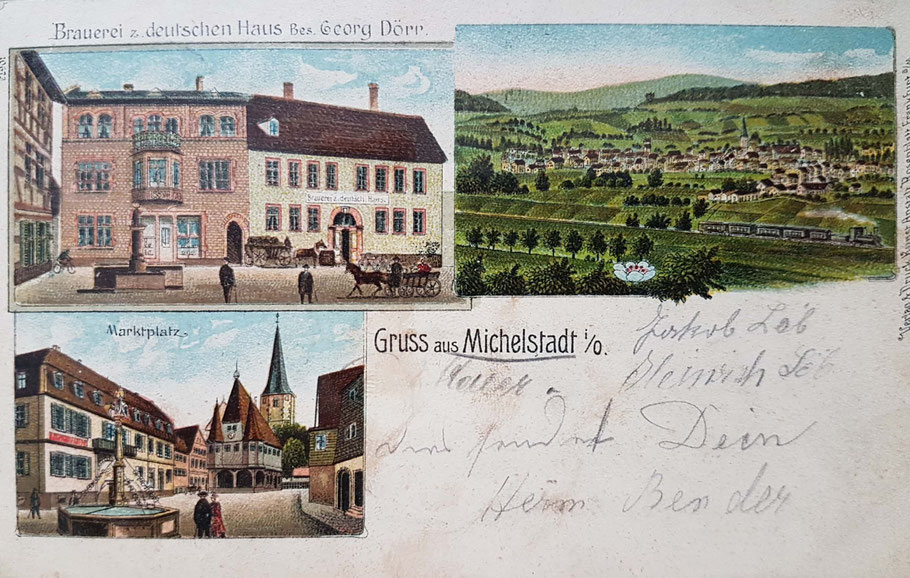 Brauerei z. deutschen Haus Bes. Georg Dörr.
Brauerei z. deutsch. Haus.
Marktplatz.
Gruss aus Michelstadt i/O.
Jakob Löb
Heinrich Löb
sendet Dein
Herm Bender